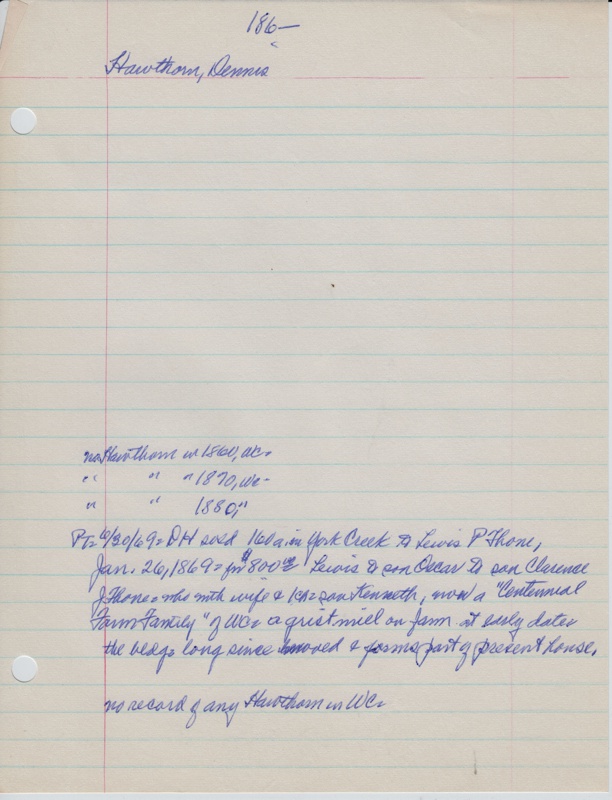 186-
Hawthorn, Dennis
no Hawthorn in 1860, WC.
" " " 1870, WC-
" " 1880, "
PT= 4/30/69= DH sold 160a. in York Creek to Lewis P Thone,
Jan. 26, 1869= for $800 Lewis to son Oscar to son Clarence
J Thone= who with wife & son Kenneth, now a "Centennial
Farm Family" of WC= a grist mill on farm at early date=
the bldg= long since moved & forms part of present house.
no record of any Hawthorn in WC=